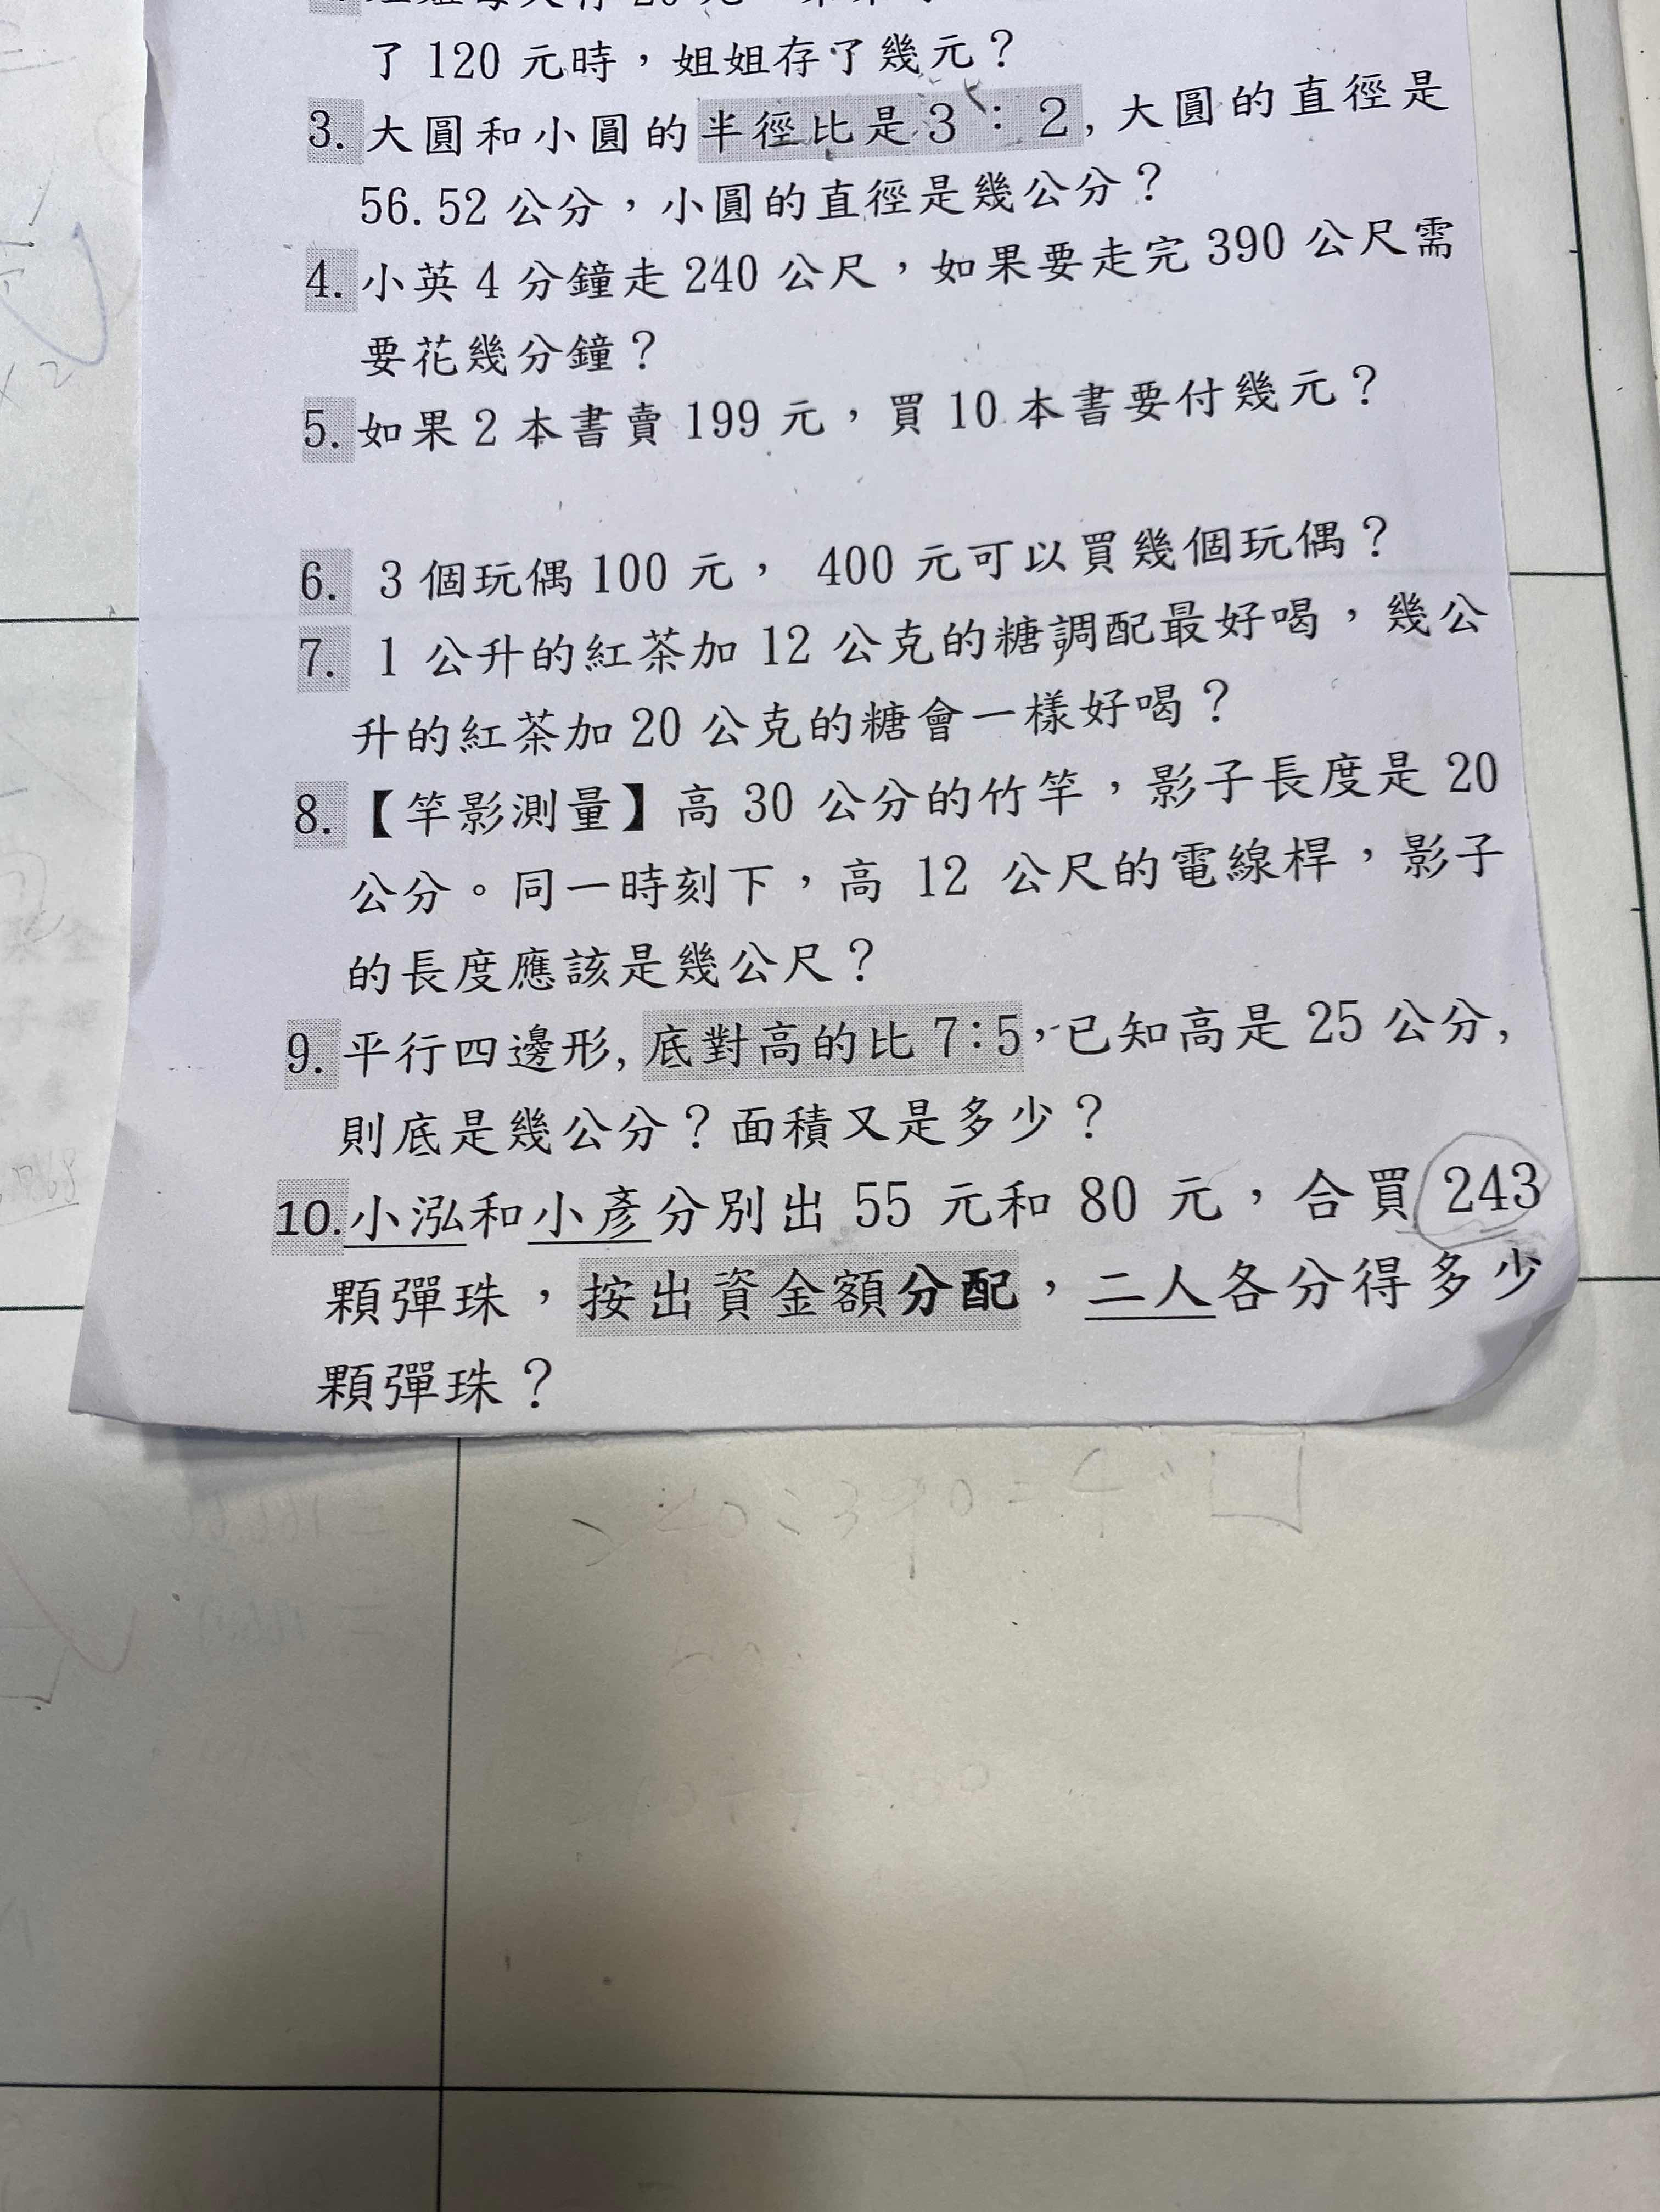 了 120 元時，姐姐存了幾元？
3. 大圓和小圓的半徑比是 3：2，大圓的直徑是
56.52 公分，小圓的直徑是幾公分？
4. 小英 4 分鐘走 240 公尺，如果要走完 390 公尺需
要花幾分鐘？
5. 如果 2 本書賣 199 元，買 10 本書要付幾元？
6. 3 個玩偶 100 元， 400 元可以買幾個玩偶？
7. 1 公升的紅茶加 12 公克的糖調配最好喝，幾公
升的紅茶加 20 公克的糖會一樣好喝？
8. 【竿影測量】高 30 公分的竹竿，影子長度是 20
公分。同一時刻下，高 12 公尺的電線桿，影子
的長度應該是幾公尺？
9. 平行四邊形，底對高的比 7：5，已知高是 25 公分，
則底是幾公分？面積又是多少？
10. 小泓和小彥分別出 55 元和 80 元，合買 243
顆彈珠，按出資金額分配，二人各分得多少
顆彈珠？